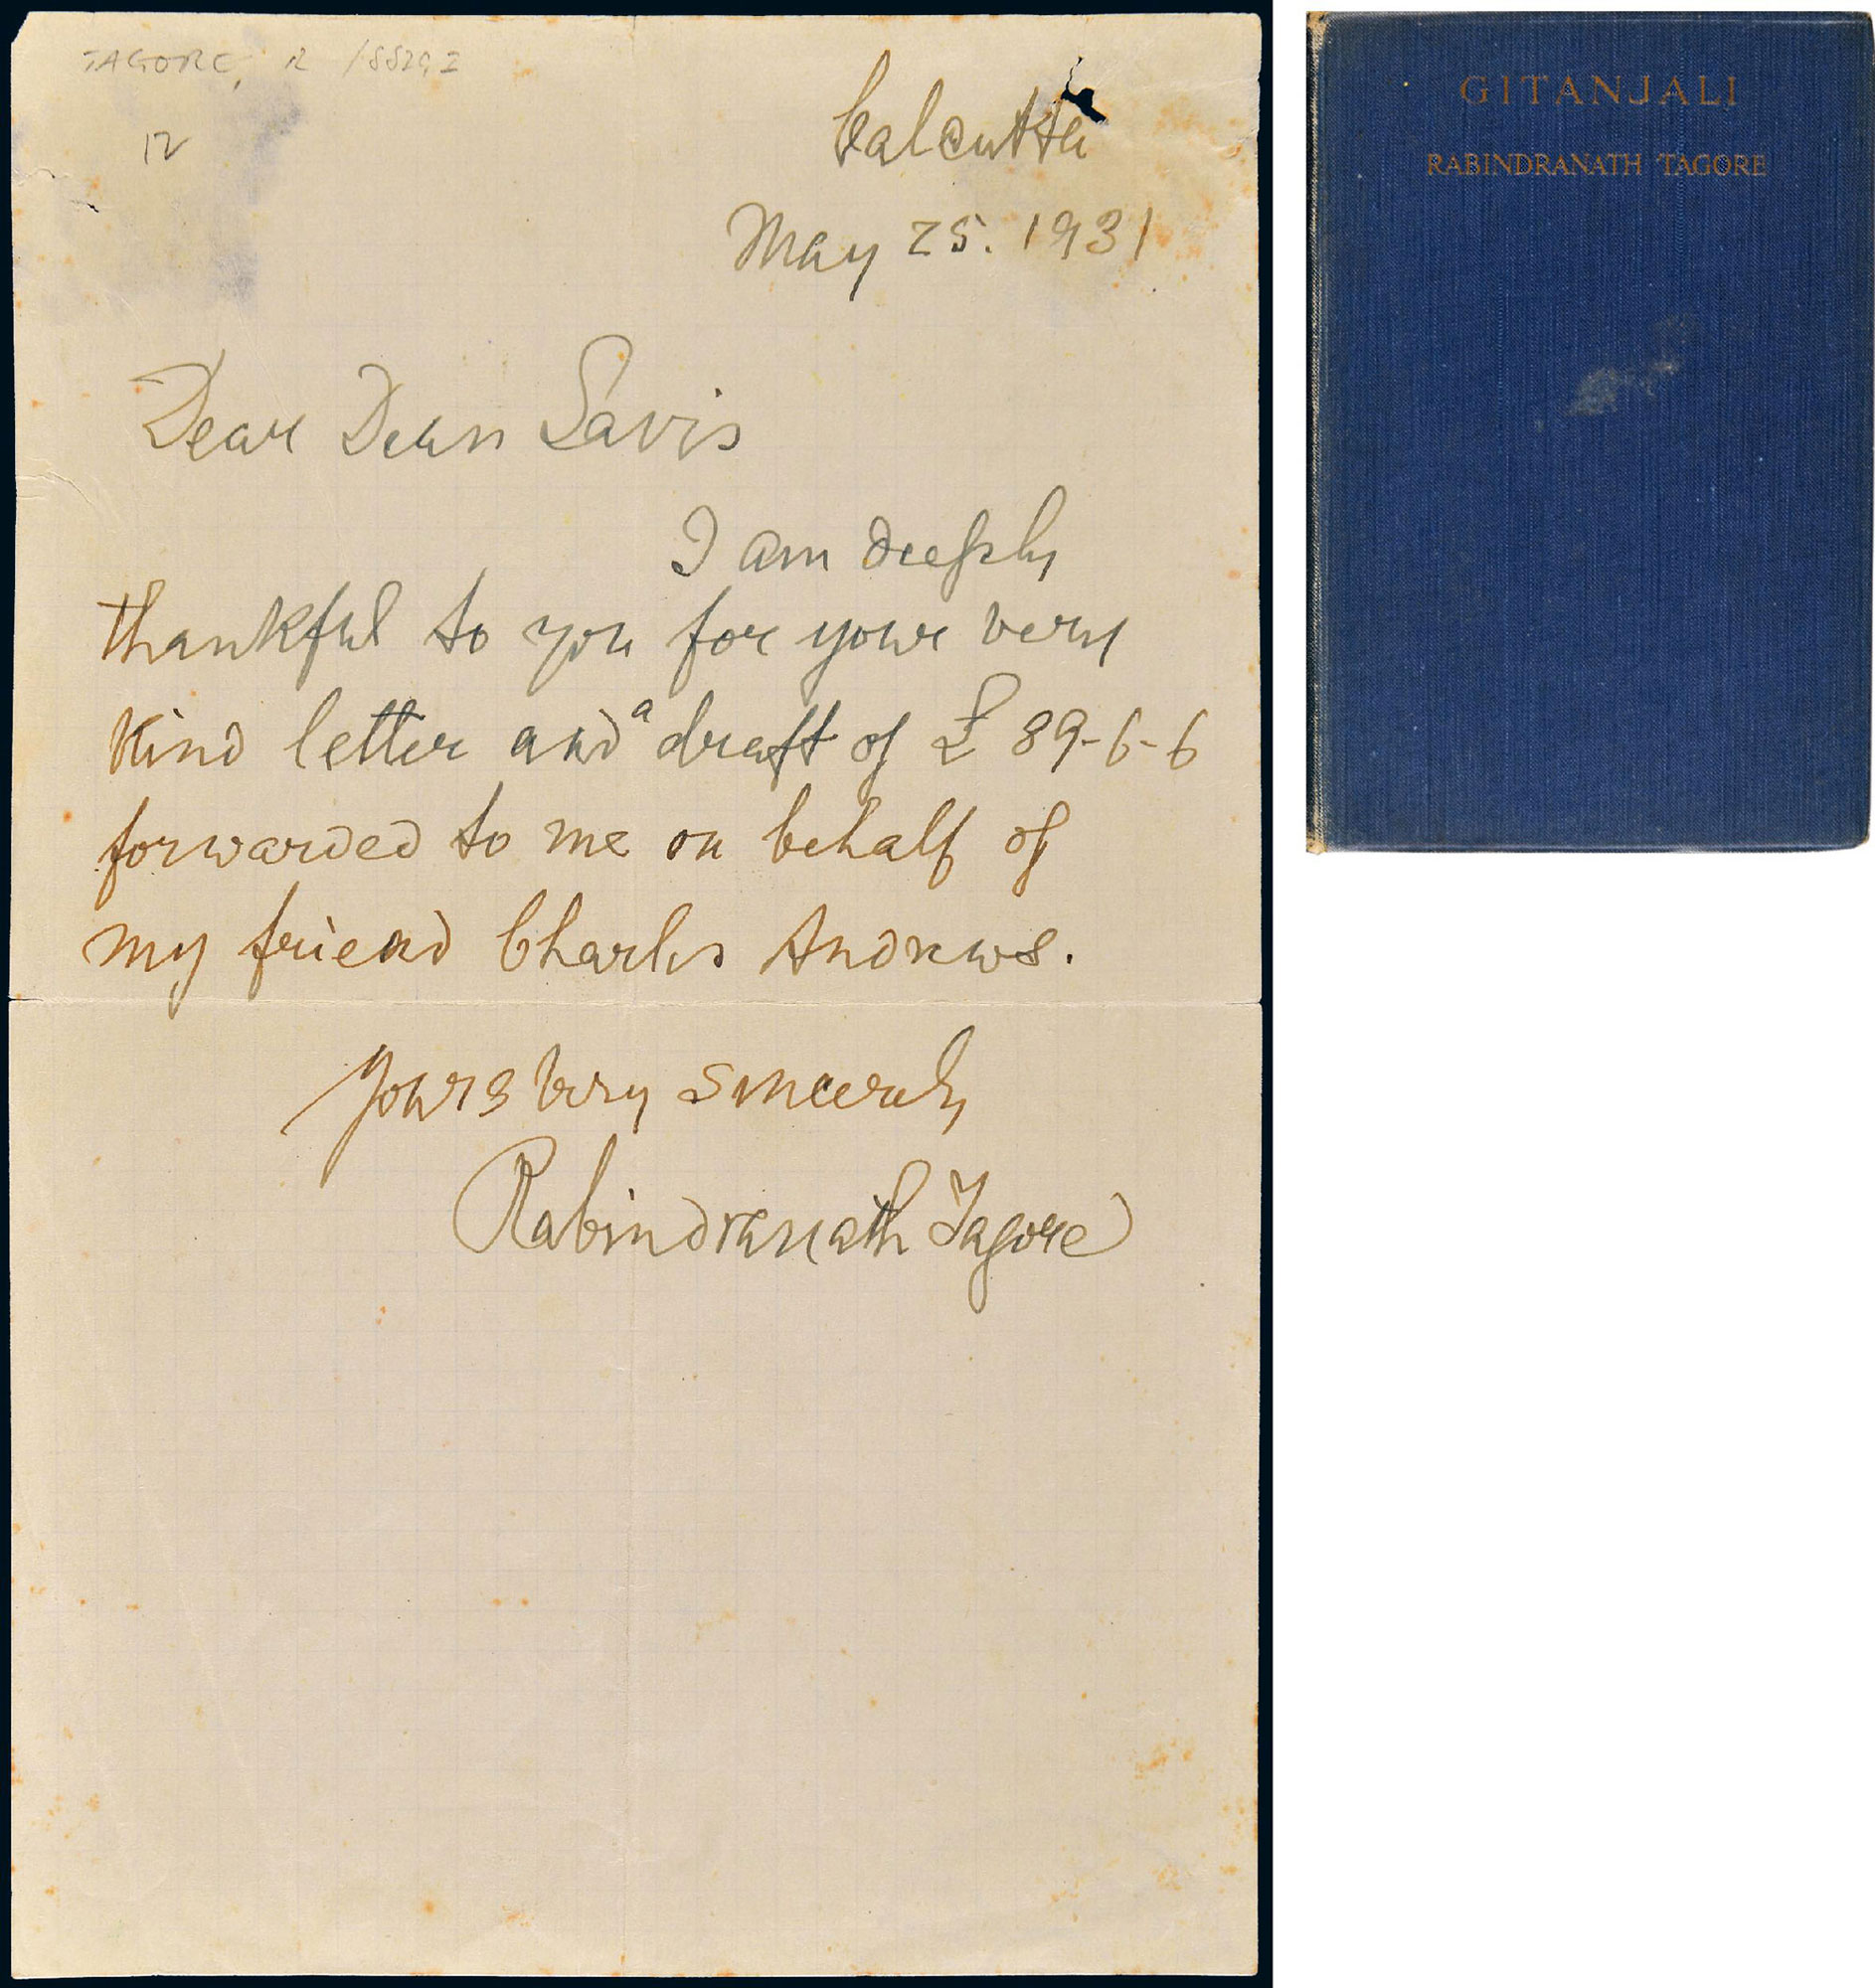 TAGORE, R
12
Calcutta
May 25. 1931
Dear Dean Savis
I am deeply
thankful to you for your very
kind letter and a draft of £ 89-6-6
forwarded to me on behalf of
my friend Charles Andrews.
Yours very sincerely
Rabindranath Tagore
GITANJALI
RABINDRANATH TAGORE